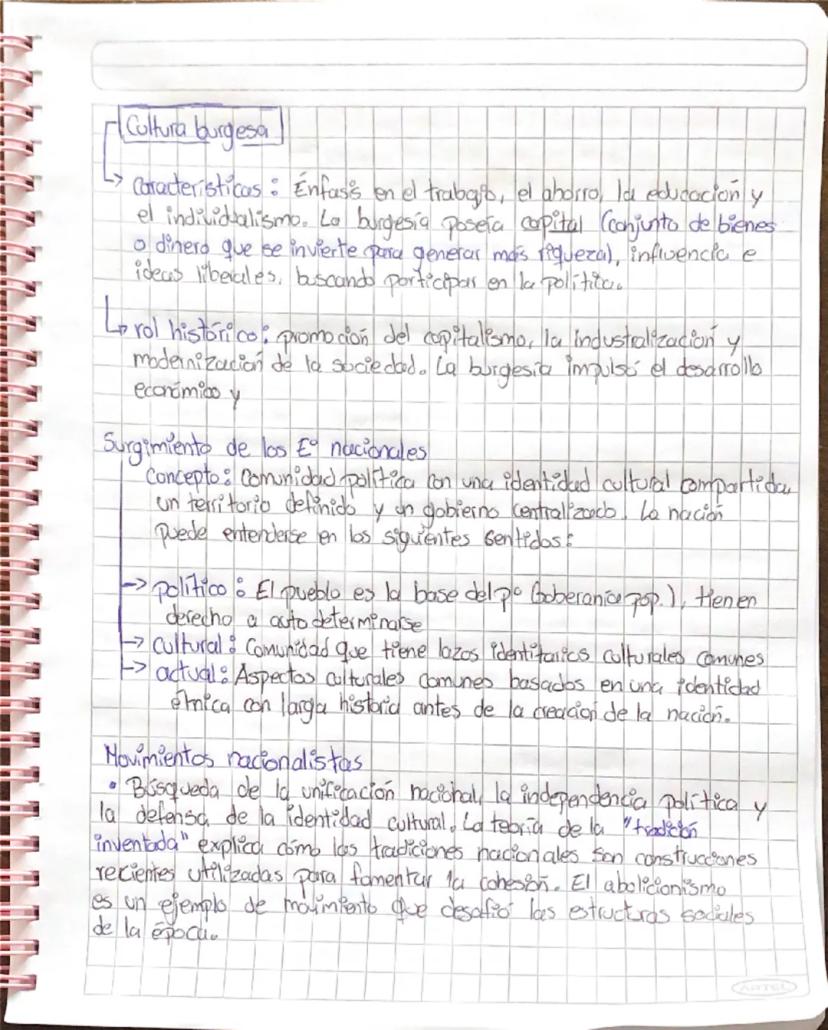 Cultura burguesa
características: Énfasis en el trabajo, el ahorro, la educación y
el individualismo. La burguesía poseía capital (conjunto de bienes
o dinero que se invierte para generar más riqueza), influencia e
ideas liberales, buscando participar en la política.
rol histórico: promoción del capitalismo, la industralización y
modernización de la sociedad. La burguesía impulsó el desarrollo
económico y
Surgimiento de los E° nacionales
Concepto: Comunidad política con una identidad cultural compartida,
un territorio definido y un gobierno centralizado. La nación
puede entenderse en los siguientes sentidos:
→ político: El pueblo es la base del p° (soberanía pop.), tienen
derecho a auto determinarse
→ cultural: Comunidad que tiene lazos identitarios culturales comunes
→ actual: Aspectos culturales comunes basados en una identidad
étnica con larga historia antes de la creación de la nación.
Movimientos nacionalistas
• Búsqueda de la unificación nacional, la independencia política y
la defensa de la identidad cultural. La teoría de la "tradición
inventada" explica cómo las tradiciones nacionales son construcciones
recientes utilizadas para fomentar la cohesión. El abolicionismo
es un ejemplo de movimiento que desafió las estructuras sociales
de la época.
ARTEL